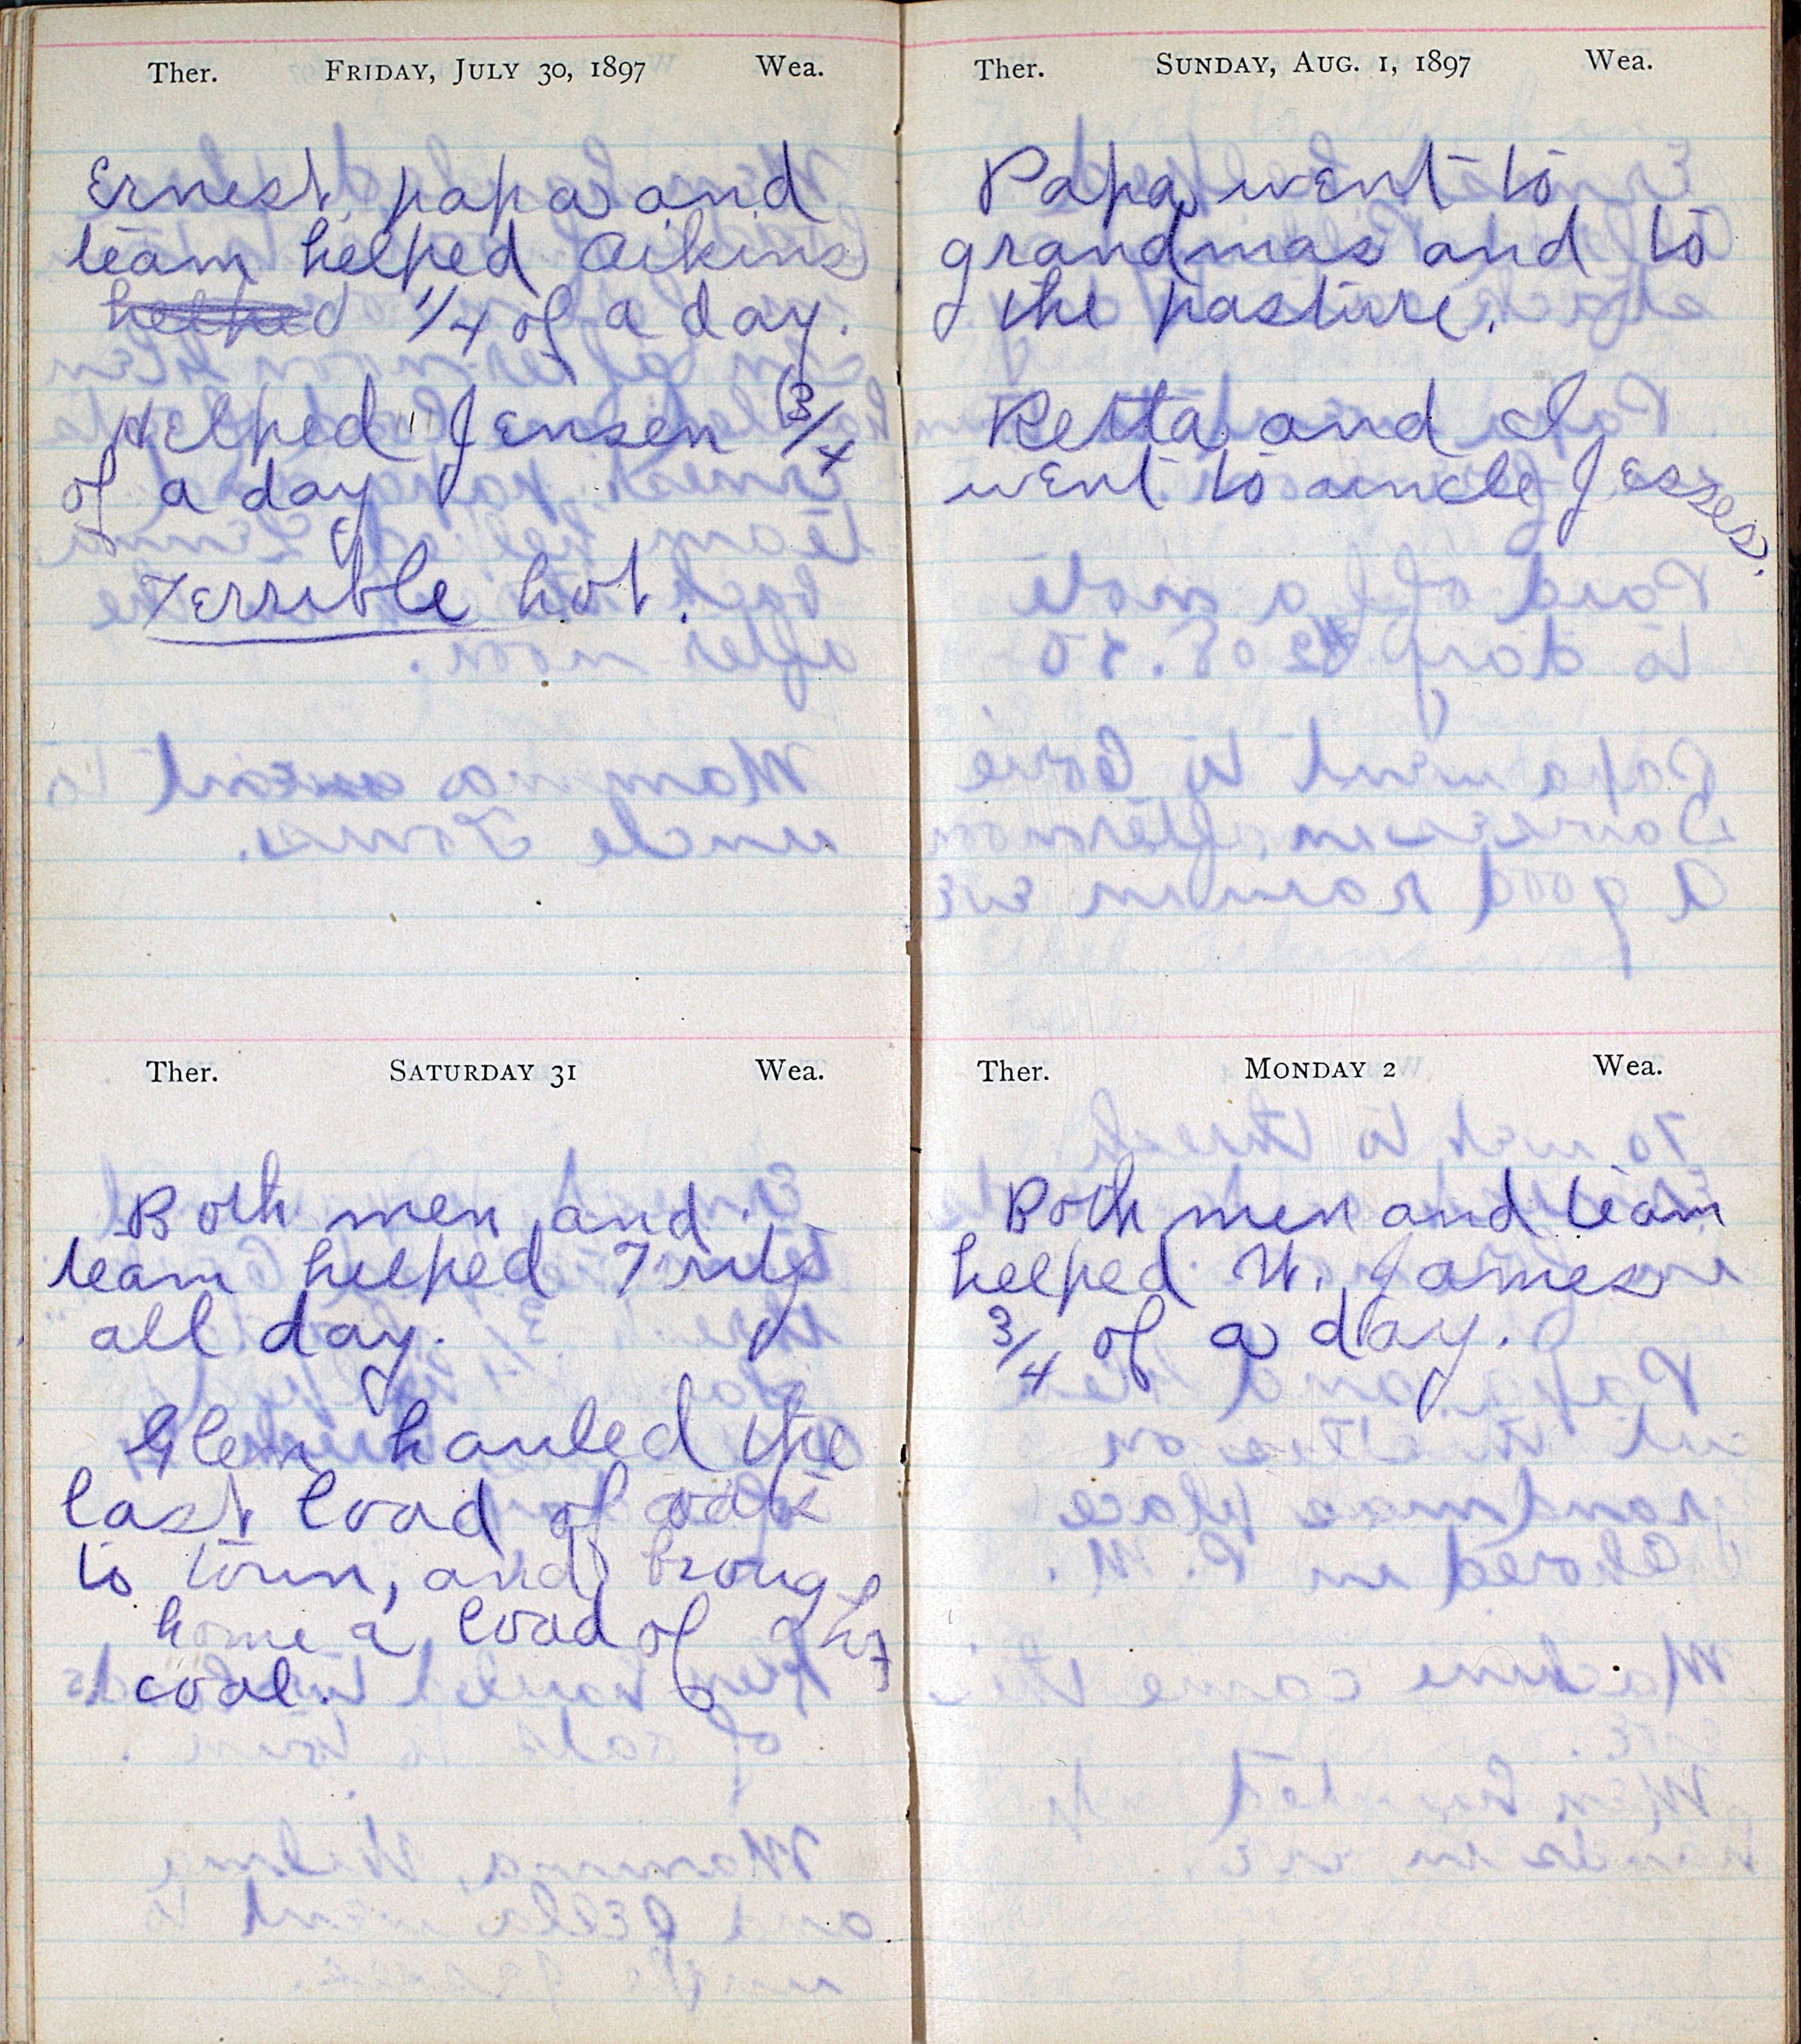 Ther. FRIDAY, JULY 30, 1897 Wea.
Ernest, papa and
team helped Aikins
helped 1/4 of a day.
Helped Jensen 3/4
of a day
Terrible hot.
Ther. SATURDAY 31 Wea.
Both men and
team helped
all day.
Glen hauled the
last load of oats
to town, and brought
home a load of
coal.
Ther. SUNDAY, AUG. 1, 1897 Wea.
Papa went to
grandmas and to
the pasture.
Retta and I
went to uncle Jesses.
Ther. MONDAY 2 Wea.
Both men and team
helped W. James
3/4 of a day.